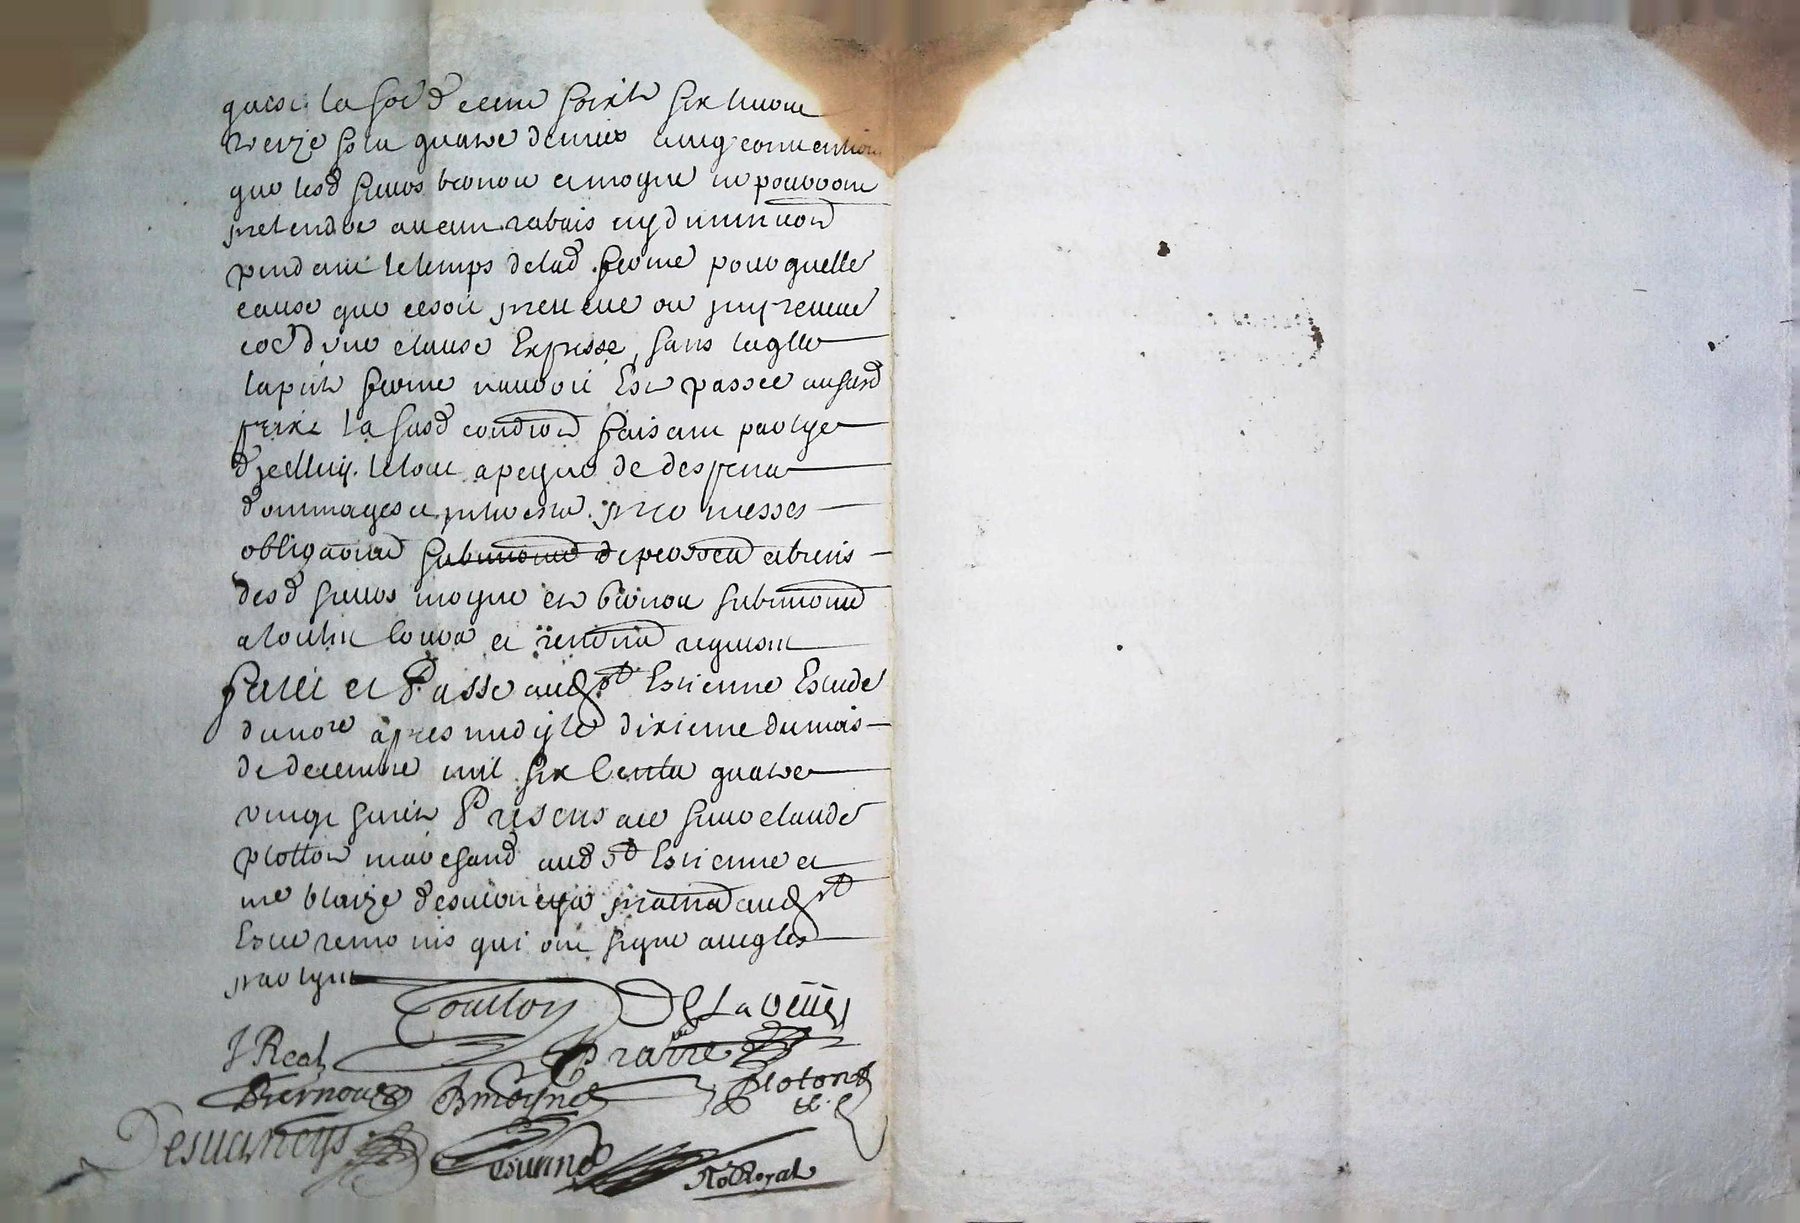 la so.e de cent soixte six livres
treize sols quatre deniers avecq convention
que lesd sieurs bernou et moyne ne pourront
pretendre aucun rabais ny diminuon
pendant le temps de lad. ferme pour quelle
cause que ce soit preveue ou impreveue
d'une clause Expresse, sans laqlle
la pnte ferme nauroit Este passée aususd
prix & la susd condition faisant partye
d'jcelluy. le tout a peyne de despens
dommages et jnterests. promesses
obligations submissions de personnes et biens
desd sieurs moyne et bernou submissions
a toutes Cours et renons requises
Faict et Passé aud st Estienne Estude
du nore apres midy le dixieme du mois
de decembre mil six Cents quatre
vingt sept Presens a ce sieur claude
plotton marchand aud st Estienne et
me blaize praticien aud st
Estne temoins qui ont signé avecq les
partyes
De La veüe
J Real
Bernou BMoyne ploton
Desverneys
Not Royal